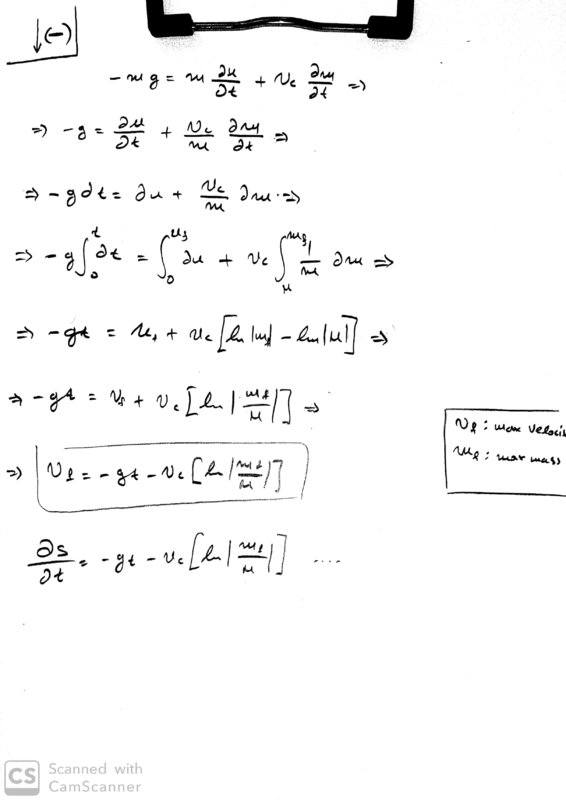 ↓(-)
-mg = m ∂u/∂t + Vc ∂m/∂t ⇒
⇒ -g = ∂u/∂t + Vc/m ∂m/∂t ⇒
⇒ -g∂t = ∂u + Vc/m ∂m ⇒
⇒ -g∫₀ᵗ ∂t = ∫₀^{uf} ∂u + Vc ∫_M^{mf} 1/m ∂m ⇒
⇒ -gt = u_f + Vc [ln|mf| - ln|M|] ⇒
⇒ -gt = Vf + Vc [ln|mf/M|] ⇒
⇒ Vf = -gt - Vc [ln|mf/M|]
Vf : max velocis
mf : max mass
∂s/∂t = -gt - Vc [ln|mf/M|] ....
CS Scanned with
CamScanner